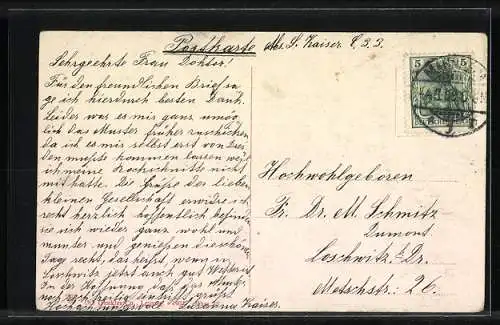 Postkarte Abs. S. Kaiser C. 3. 3.
Sehrgeehrte Frau Doktor!
Für den freundlichen Brief sa-
ge ich hierdurch besten Dank.
Leider war es mir ganz unmög-
lich das Muster früher zuschicken,
da ich es mir selbst erst von
den mußte kommen lassen weil
ich meine Kochschnitte nicht
mit hatte. Die Grüße der lieben
kleinen Gesellschaft erwidre ich
recht herzlich hoffentlich befinden
sie sich wieder ganz wohl und
munter und genießen die schönen
Tag recht, das heißt, wenn in
Loschwitz jetzt auch gut Wetter ist.
In der Hoffnung daß das Muster
noch rechtzeitig eintrifft, grüßt
Hochachtungsvoll Susanna Kaiser.
Hochwohlgeboren
Fr. Dr. M. Schmitz
Dumont.
Loschwitz b/Dr.
Metschstr: 26.
5 5